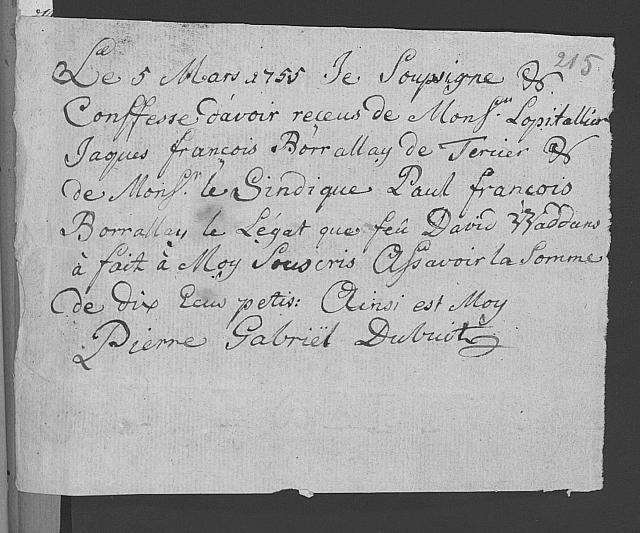 215
Le 5 Mars 1755 Je Soupsigne &
Conffesse d'avoir receus de Monsr. Lopitallier
Jaques françois Borrallay de Tercier &
de Monsr. le Sindique Paul françois
Borrallay le Légat que feû David
à fait à Moy Souscris Assavoir la Somme
de dix Ecus petis: Ainsi est Moy
Pierre Gabriël Dubuit